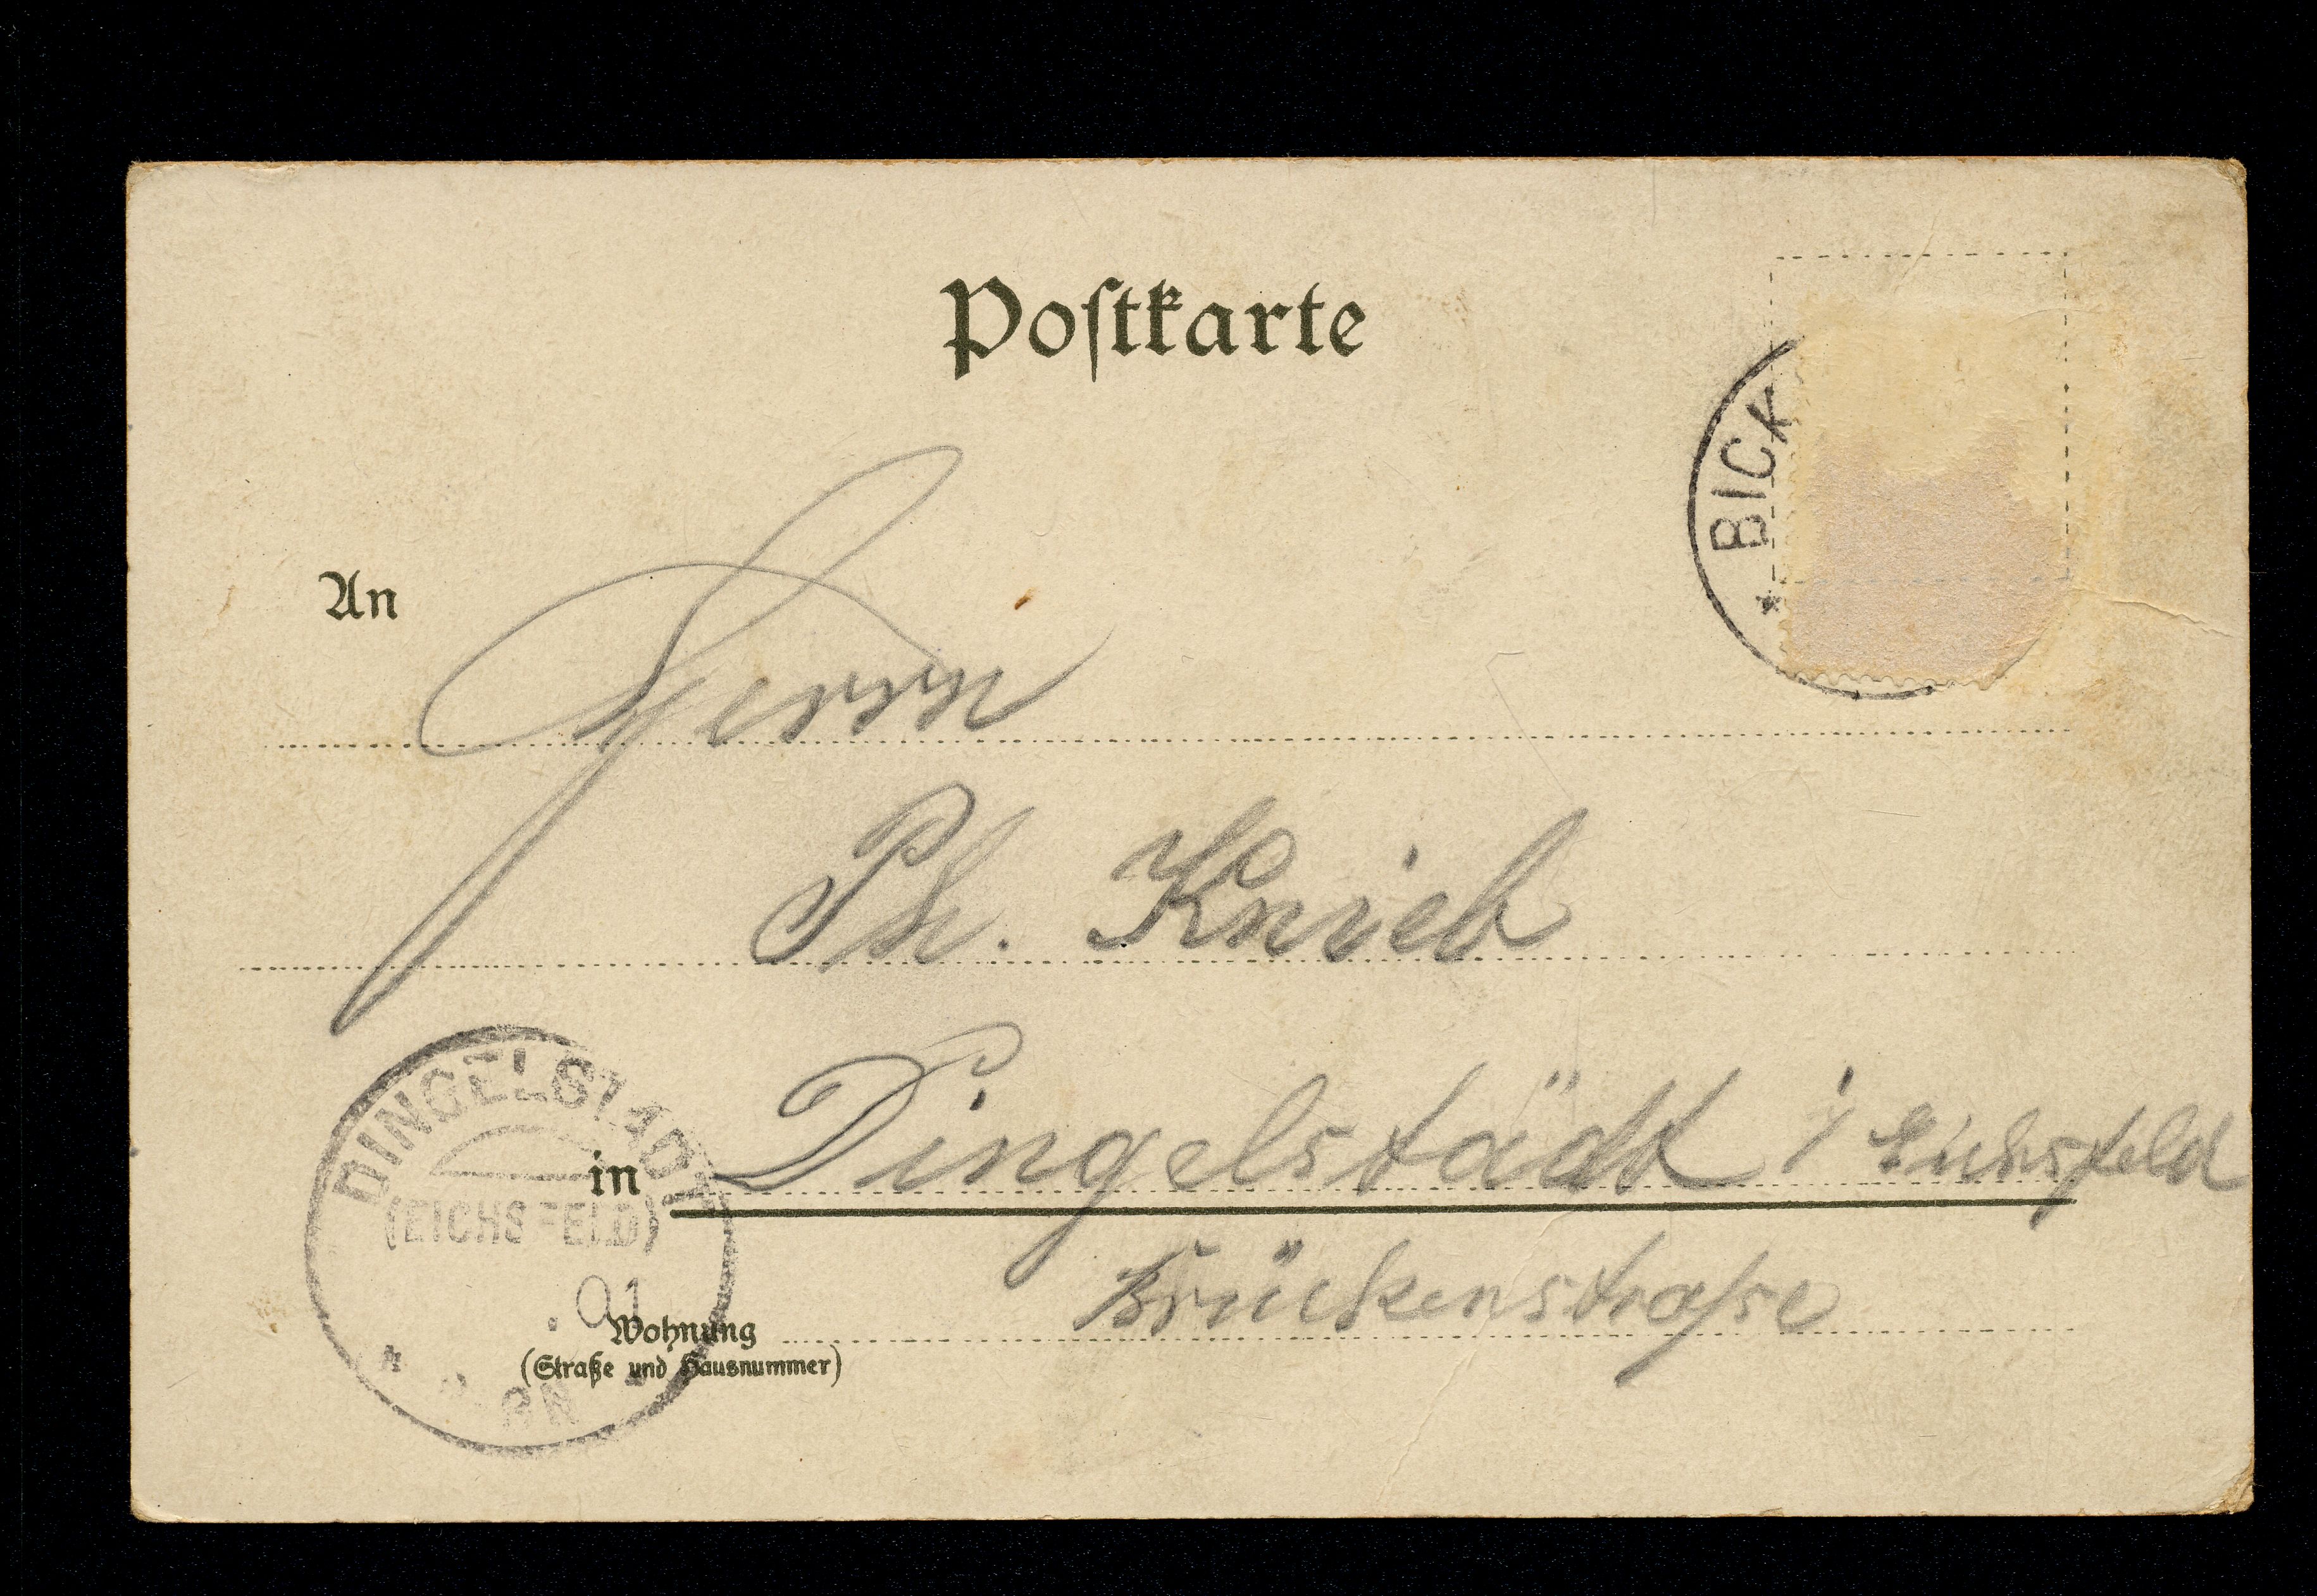 Postkarte
BICK
An
Herrn
Ph. Knieb
DINGELSTÄDT
in Dingelstädt i/ Eichsfeld
(EICHSFELD)
Brückenstraße
.01
Wohnung
(Straße und Hausnummer)